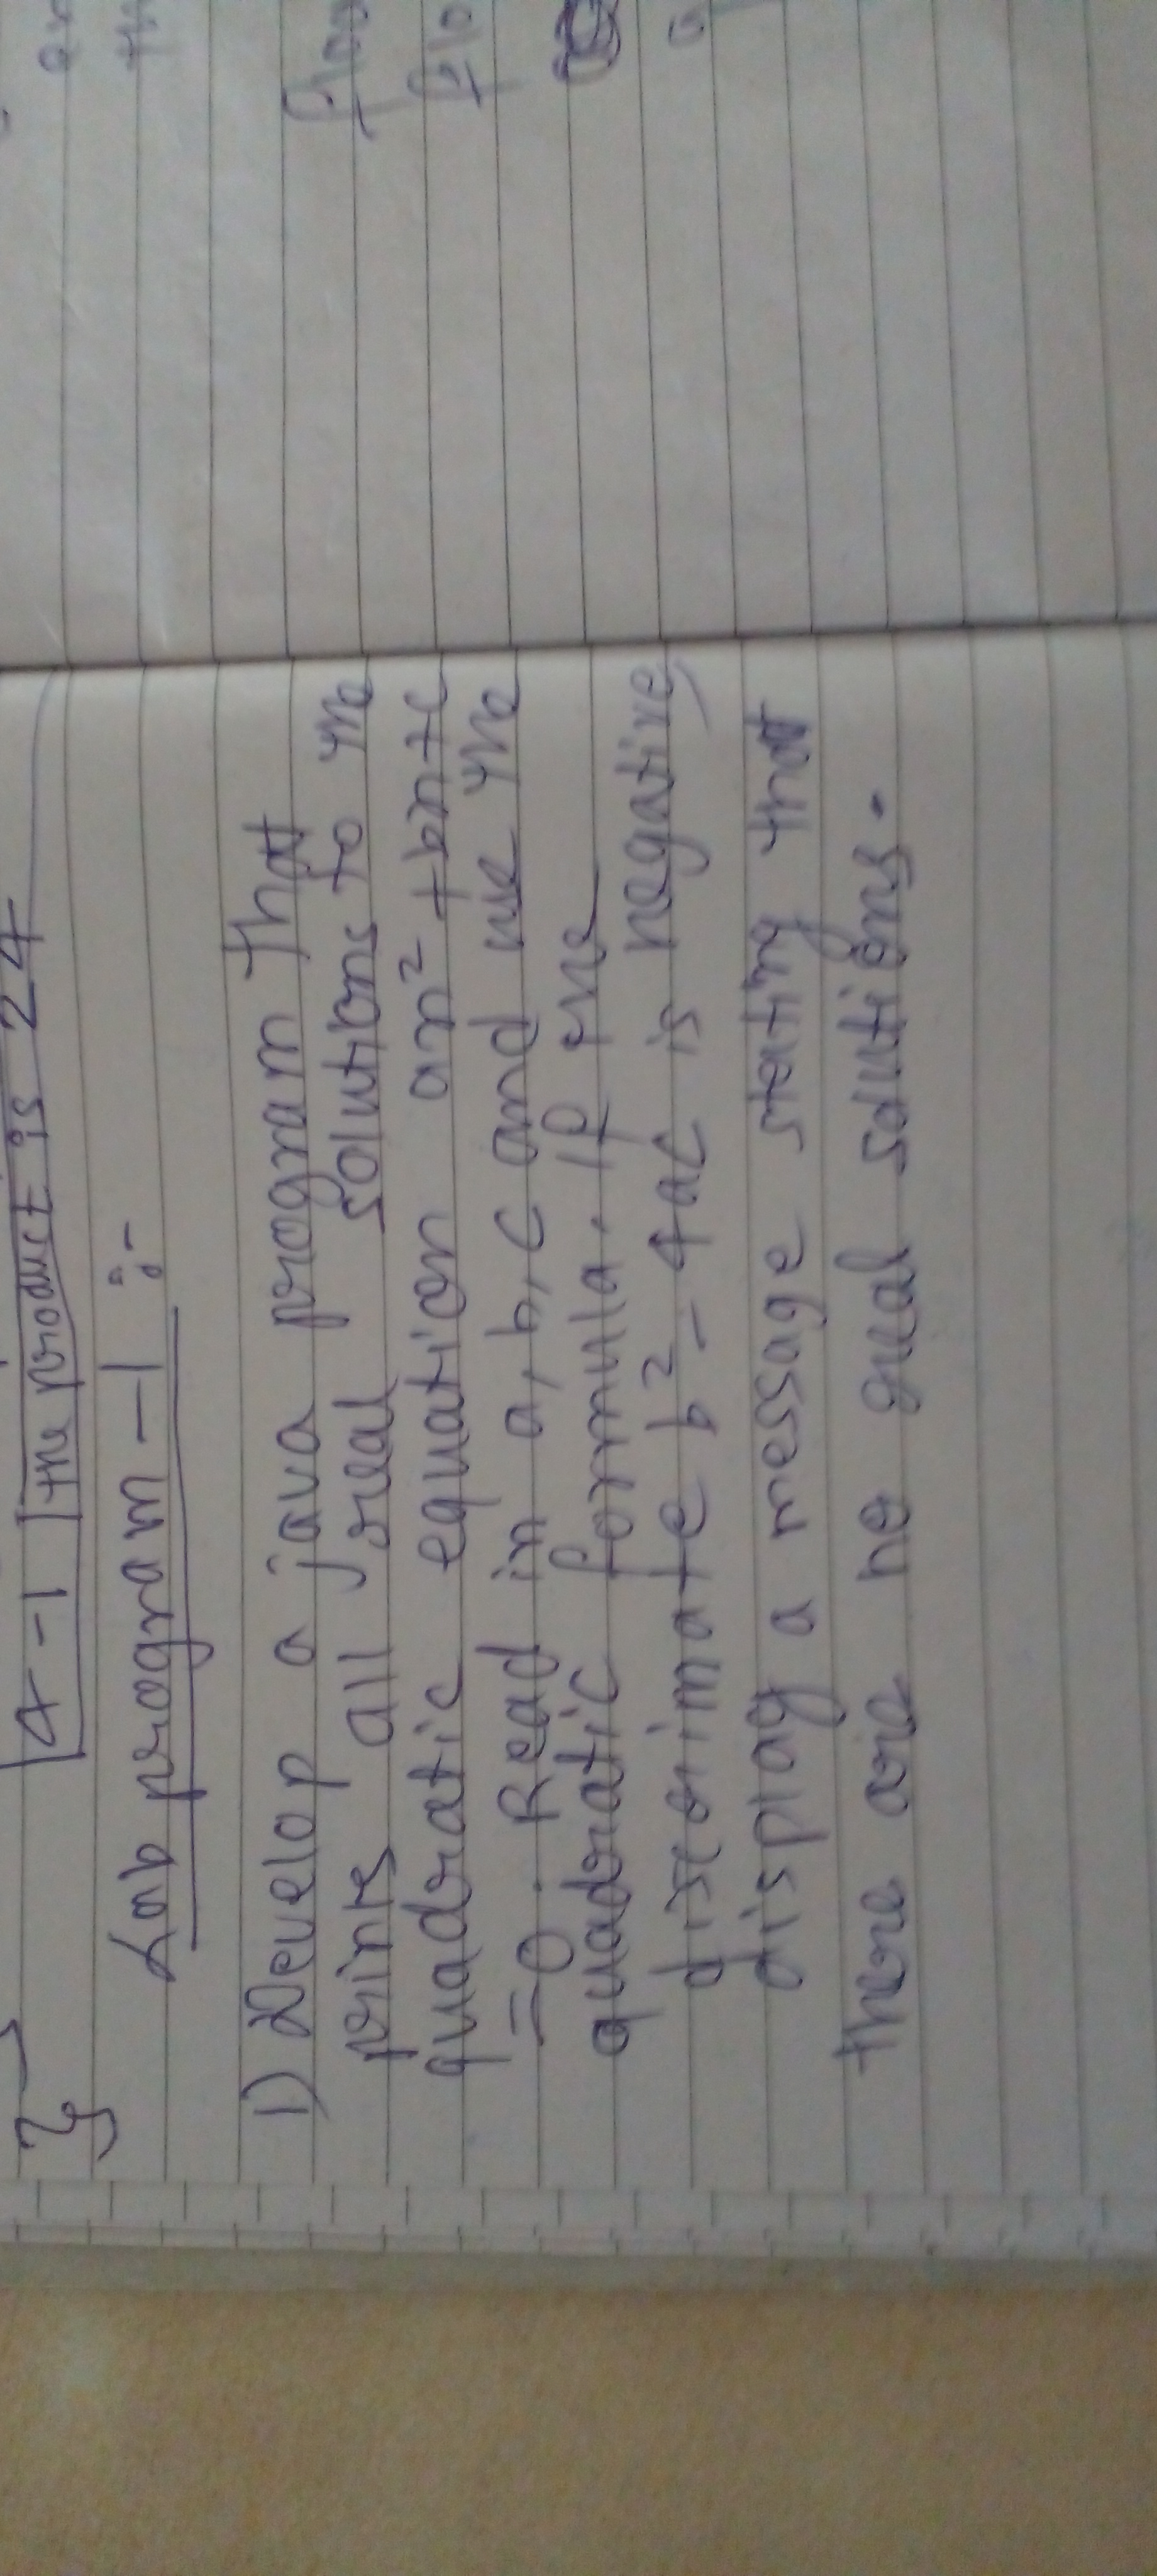 4-1 the product is 24
Lab program -1 :-
1) Develop a java program that
prints all real solutions to the
quadratic equation ax² + bx + c
=0. Read in a, b, c and use the
quadratic formula. If the
discriminate b² - 4ac is negative
display a message stating that
there are no real solutions.